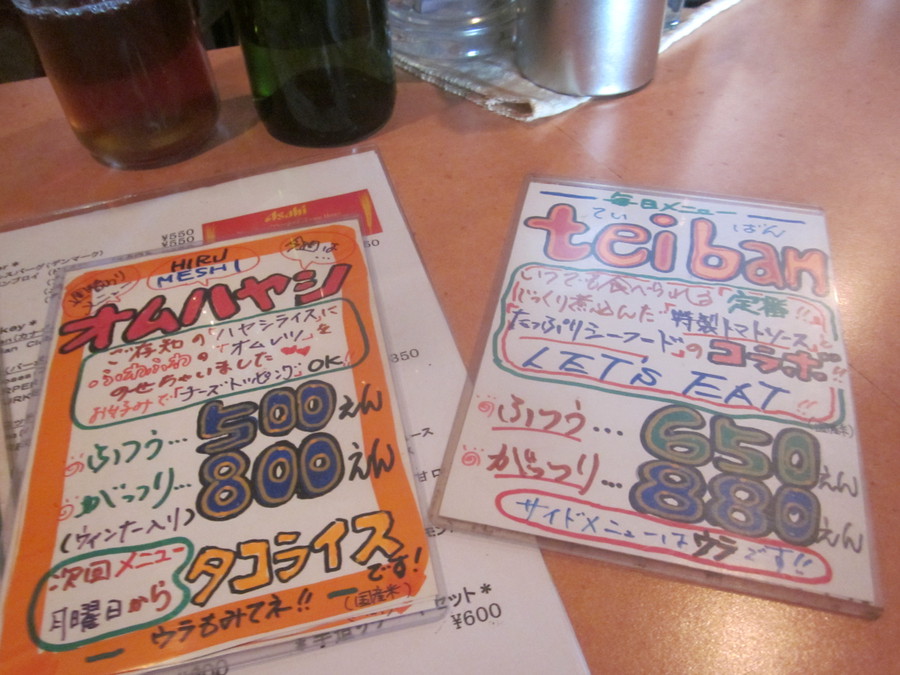 HIRU
MESHI
オムハヤシ
ご存知の「ハヤシライス」に
ふわふわの「オムレツ」を
のせちゃいました
お好みで「チーズ・トッピング」OK!!
ふつう… 500えん
がっつり… 800えん
(ウィンナー入り)
次回メニュー
月曜日から
タコライス
です!
ウラもみてネ!!
(国産米)
毎日メニュー
てい ばん
teiban
いつでも食べられる「定番」!!
じっくり煮込んだ「特製トマトソース」と
「たっぷりシーフード」のコラボ!!
LET'S EAT!!
ふつう… 650えん
がっつり… 880えん
サイドメニューはウラです!!
Asahi
¥550
¥550
セット*
¥600